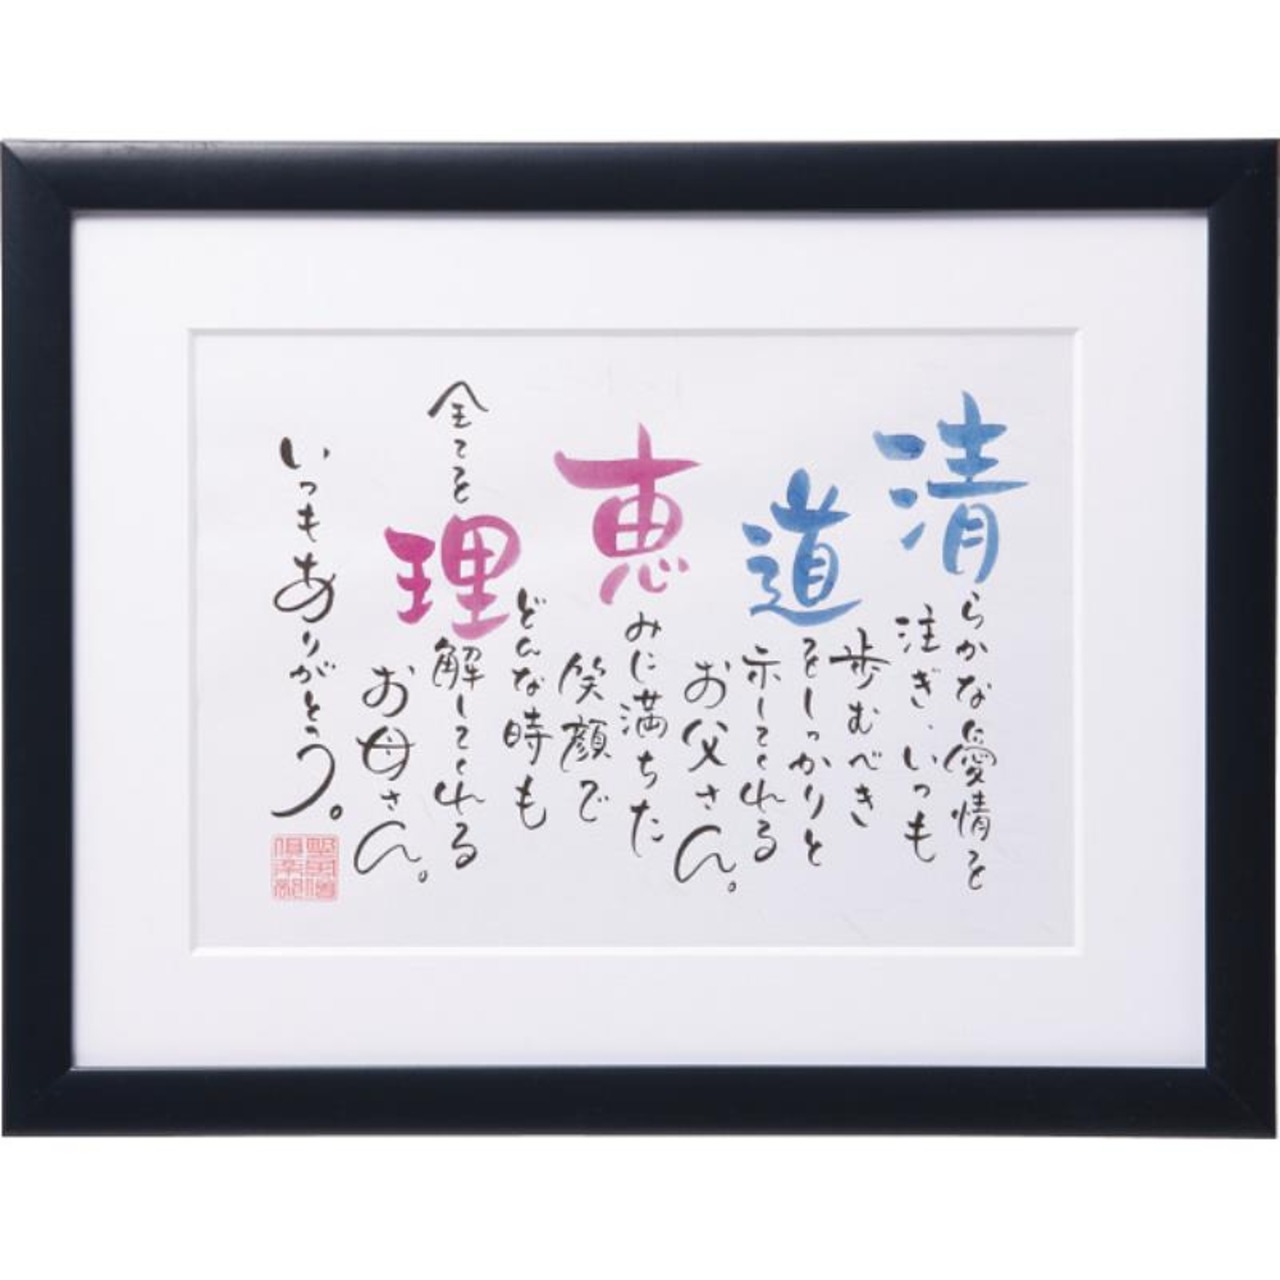 清らかな愛情を
注ぎ、いつも
歩むべき
道をしっかりと
示してくれる
お父さん。
恵みに満ちた
笑顔で
どんな時も
全てを理解してくれる
お母さん。
いつもありがとう。